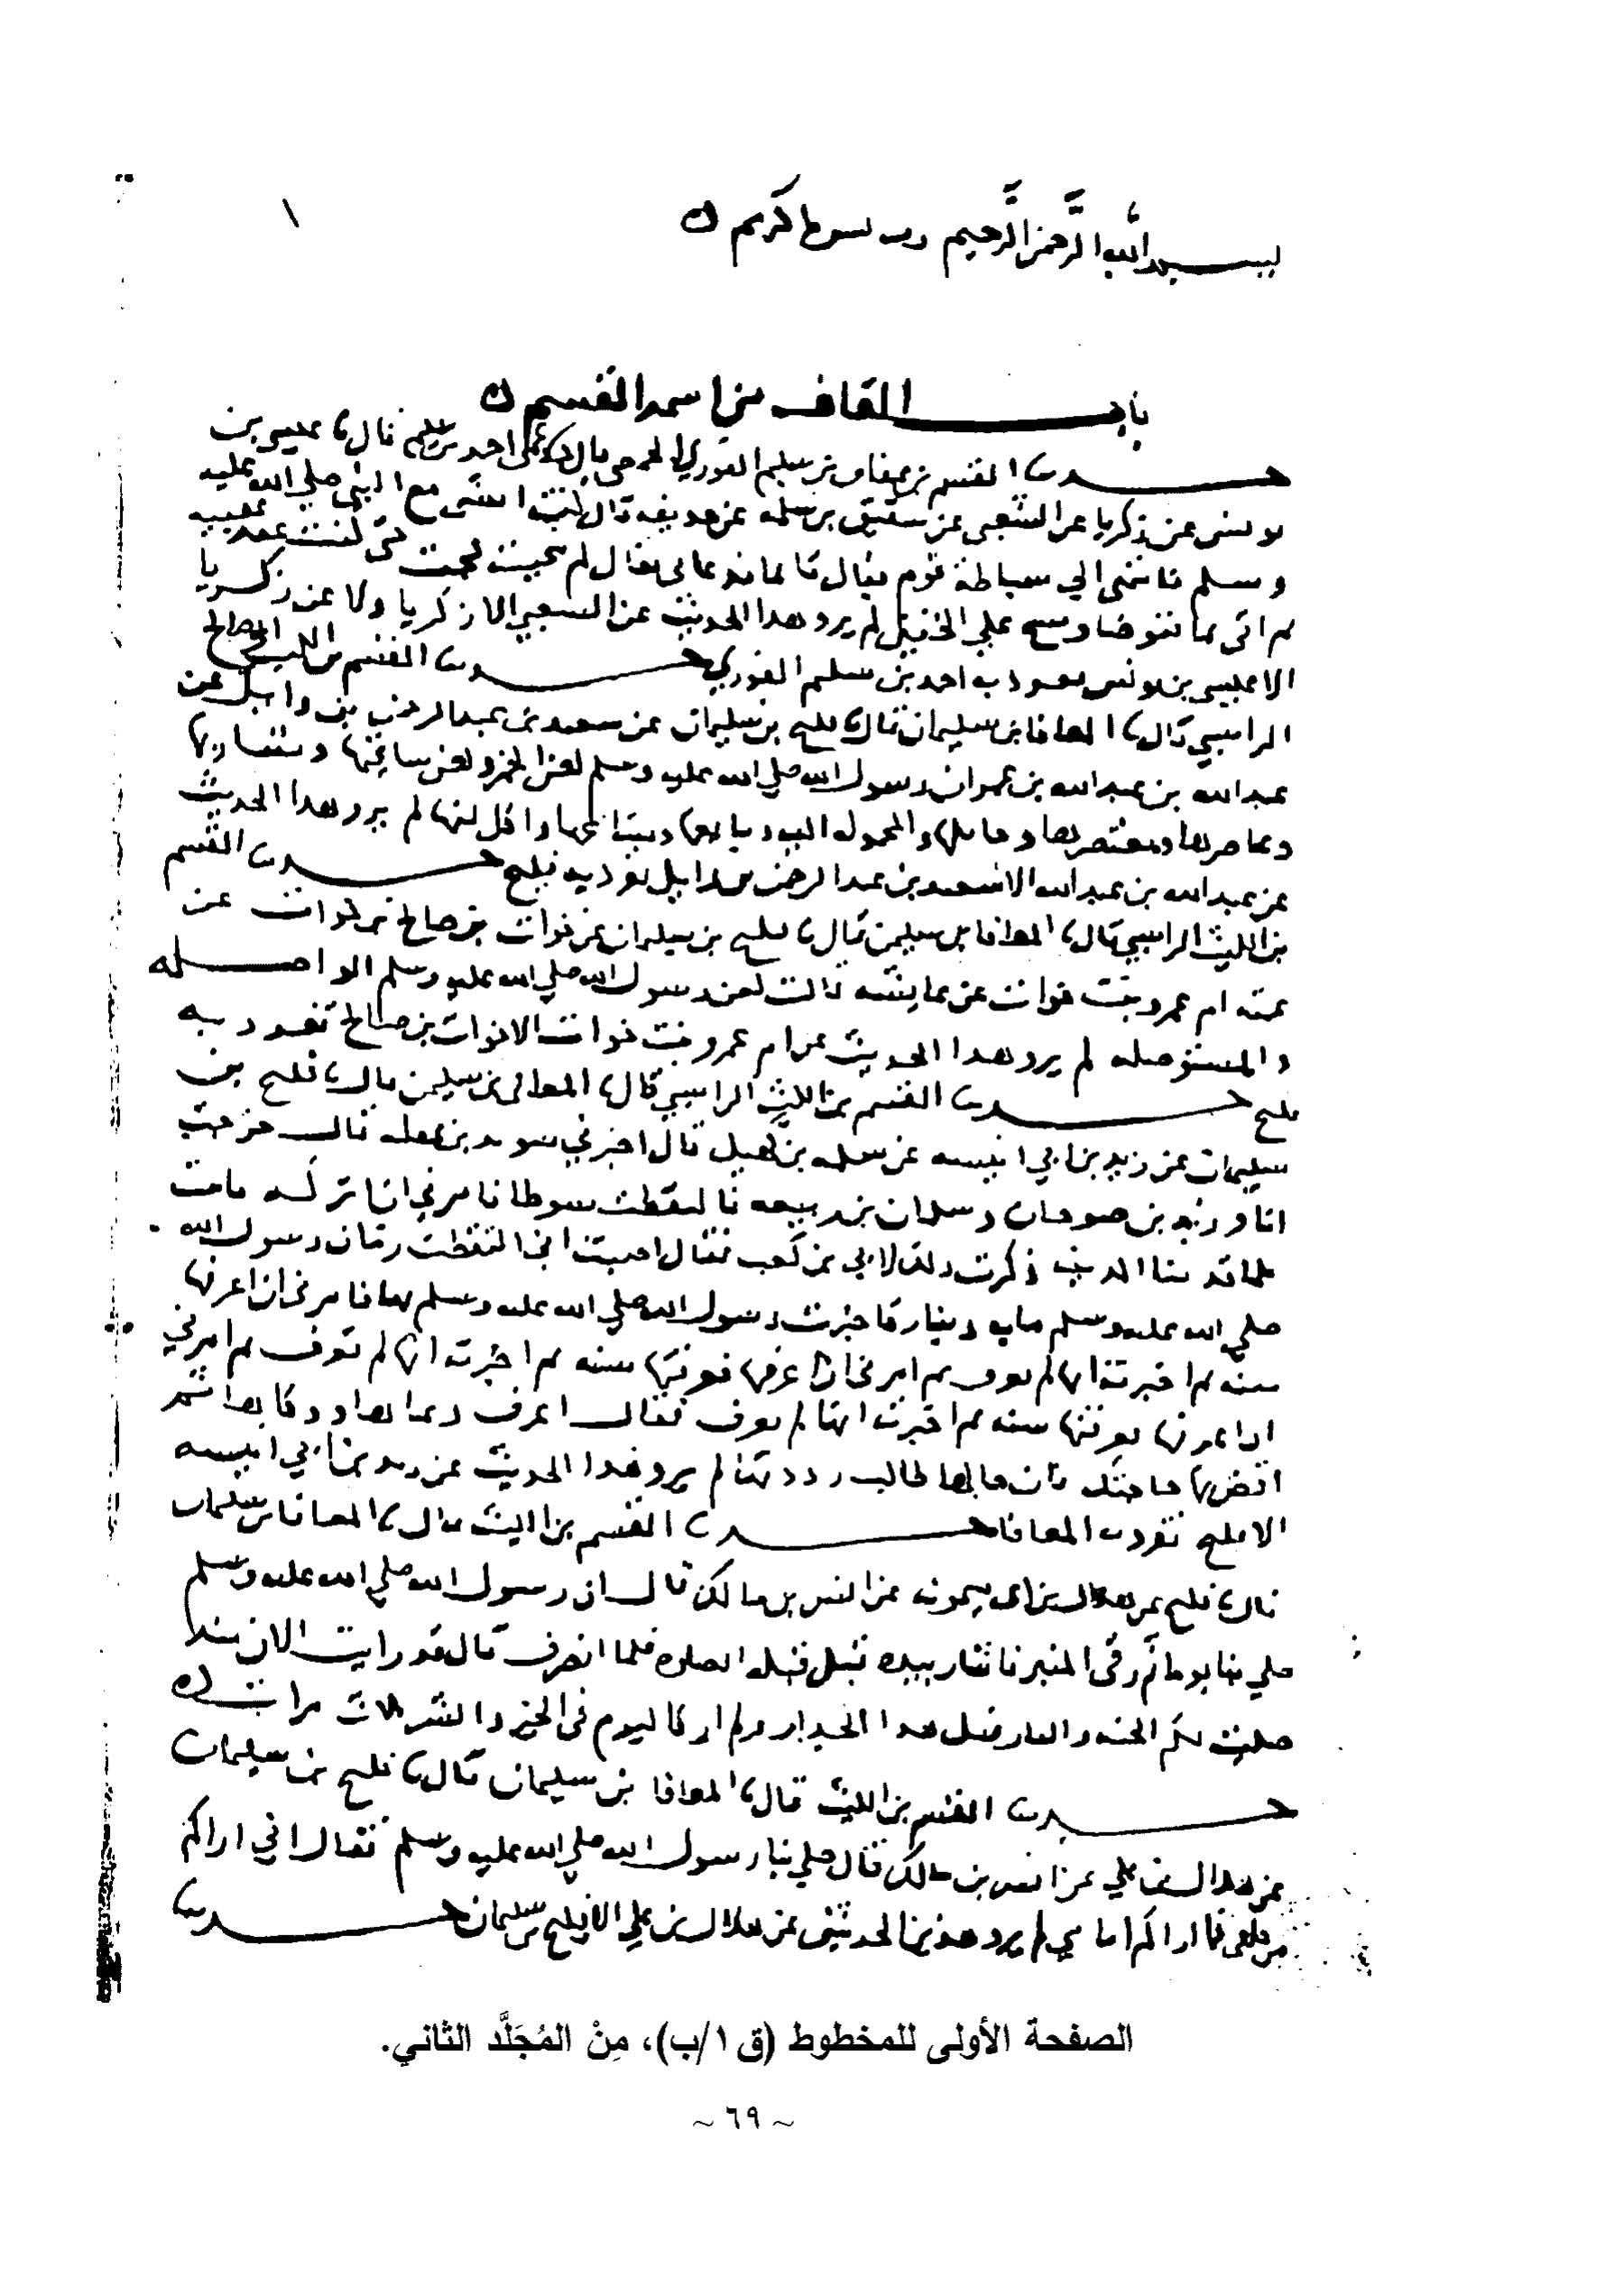 بسم الله الرحمن الرحيم رب يسر يا كريم ه
١
باب القاف من اسمه القسم ه
حدثنا القسم بن عفان بن سليم الفوزي الحمصي قال عمي احمد بن سليم قال نا عيسى بن
يونس عن زكريا عن الشعبي عن شقيق بن سلمه عن حذيفه قال كنت امشي مع النبي صلي الله عليه
وسلم فانتهى الي سباطة قوم فبال قائما فدعاني فقال لم تنحيت فجئت حتى كنت عند عقبيه
ثم اتى بما فتوضا ومسح علي الخفين لم يرو هذا الحديث عن الشعبي الا زكريا ولا عن زكريا
الا عيسى بن يونس تفرد به احمد بن سليم الفوزي حدثنا القسم بن الليث ابو صالح
الراسبي قال نا المعافا بن سليمان قال نا فليح بن سليمان عن سعيد بن عبد الرحمن بن وايل عن
عبد الله بن عبد الله بن عمر ان رسول الله صلي الله عليه وسلم لعن الخمر ولعن ساقيها وشاربها
وعاصرها ومعتصرها وحاملها والمحموله اليه وبايعها ومبتاعها واكل ثمنها لم يرو هذا الحديث
عن عبد الله بن عبد الله الا سعيد بن عبد الرحمن بن وايل تفرد به فليح حدثنا القسم
بن الليث الراسبي قال نا المعافا بن سليمن قال نا فليح بن سليمان عن خوات بن صالح بن خوات عن
عمته ام عمرو بنت خوات عن عايشه قالت لعن رسول الله صلي الله عليه وسلم الواصله
والمستوصله لم يرو هذا الحديث عن ام عمرو بنت خوات الا خوات بن صالح تفرد به
فليح حدثنا القسم بن الليث الراسبي قال نا المعافى بن سليمن قال نا فليح بن
سليمان عن زيد بن ابي انيسه عن سلمه بن كهيل قال اخبرني سويد بن غفله قال خرجت
انا وزيد بن صوحان وسلمان بن ربيعه فالتقطت سوطا فامرني ان اتركه فابيت
فلما قدمنا المدينه ذكرت ذلك لابي بن كعب فقال اصبت اني التقطت زمان رسول الله
صلي الله عليه وسلم مايه دينار فاخبرت رسول الله صلي الله عليه وسلم بها فامرني ان اعرفها
سنه ثم اخبرته انها لم تعرف ثم امرني ان اعرفها فعرفتها سنه ثم اخبرته انها لم تعرف ثم امرني
ان اعرفها فعرفتها سنه ثم اخبرته انها لم تعرف فقال اعرف وعاها ووكاها ثم
اقض بها حاجتك فان جا لها طالب رددتها لم يرو هذا الحديث عن زيد بن ابي انيسه
الا فليح تفرد به المعافا حدثنا القسم بن الليث قال نا المعافا بن سليمان
قال نا فليح عن هلال بن ابي ميمونه عن انس بن مالك قال ان رسول الله صلي الله عليه وسلم
صلي بنا يوما ثم رقى المنبر فاشار بيده قبل قبله الصلاه فلما انصرف قال قد رايت الان منذ
صليت لكم الجنه والنار قبل هذا الجدار ولم ار كاليوم في الخير والشر ثلاث مرات ه
حدثنا القسم بن الليث قال نا المعافا بن سليمان قال نا فليح بن سليمان
عن هلال بن علي عن انس بن مالك قال صلي بنا رسول الله صلي الله عليه وسلم فقال اني اراكم
من خلفي كما اراكم امامي لم يرو هذين الحديثين عن هلال بن علي الا فليح بن سليمان حدثنا
الصفحة الأولى للمخطوط (ق ١/ب)، مِنْ المُجَلَّد الثاني.
~ ٦٩ ~